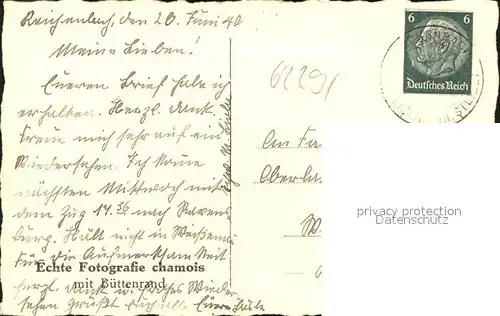 Reichenbach, den 20. Juni 40
Meine Lieben!
Eueren Brief habe ich
erhalten. Herzl. Dank.
Freue mich sehr auf ein
Wiedersehen. Ich komme
nächsten Mittwoch mit
dem Zug 14.36 nach Ravens
burg. Hält nicht in
Für die Aufmerksamkeit
herzl. Dank u. frohes Wieder
sehen grüßt Euch alle Euere
Echte Fotografie chamois
mit Büttenrand
6 6
Deutsches Reich
6229/
An Fa
Oberla
W
privacy protection
Datenschutz